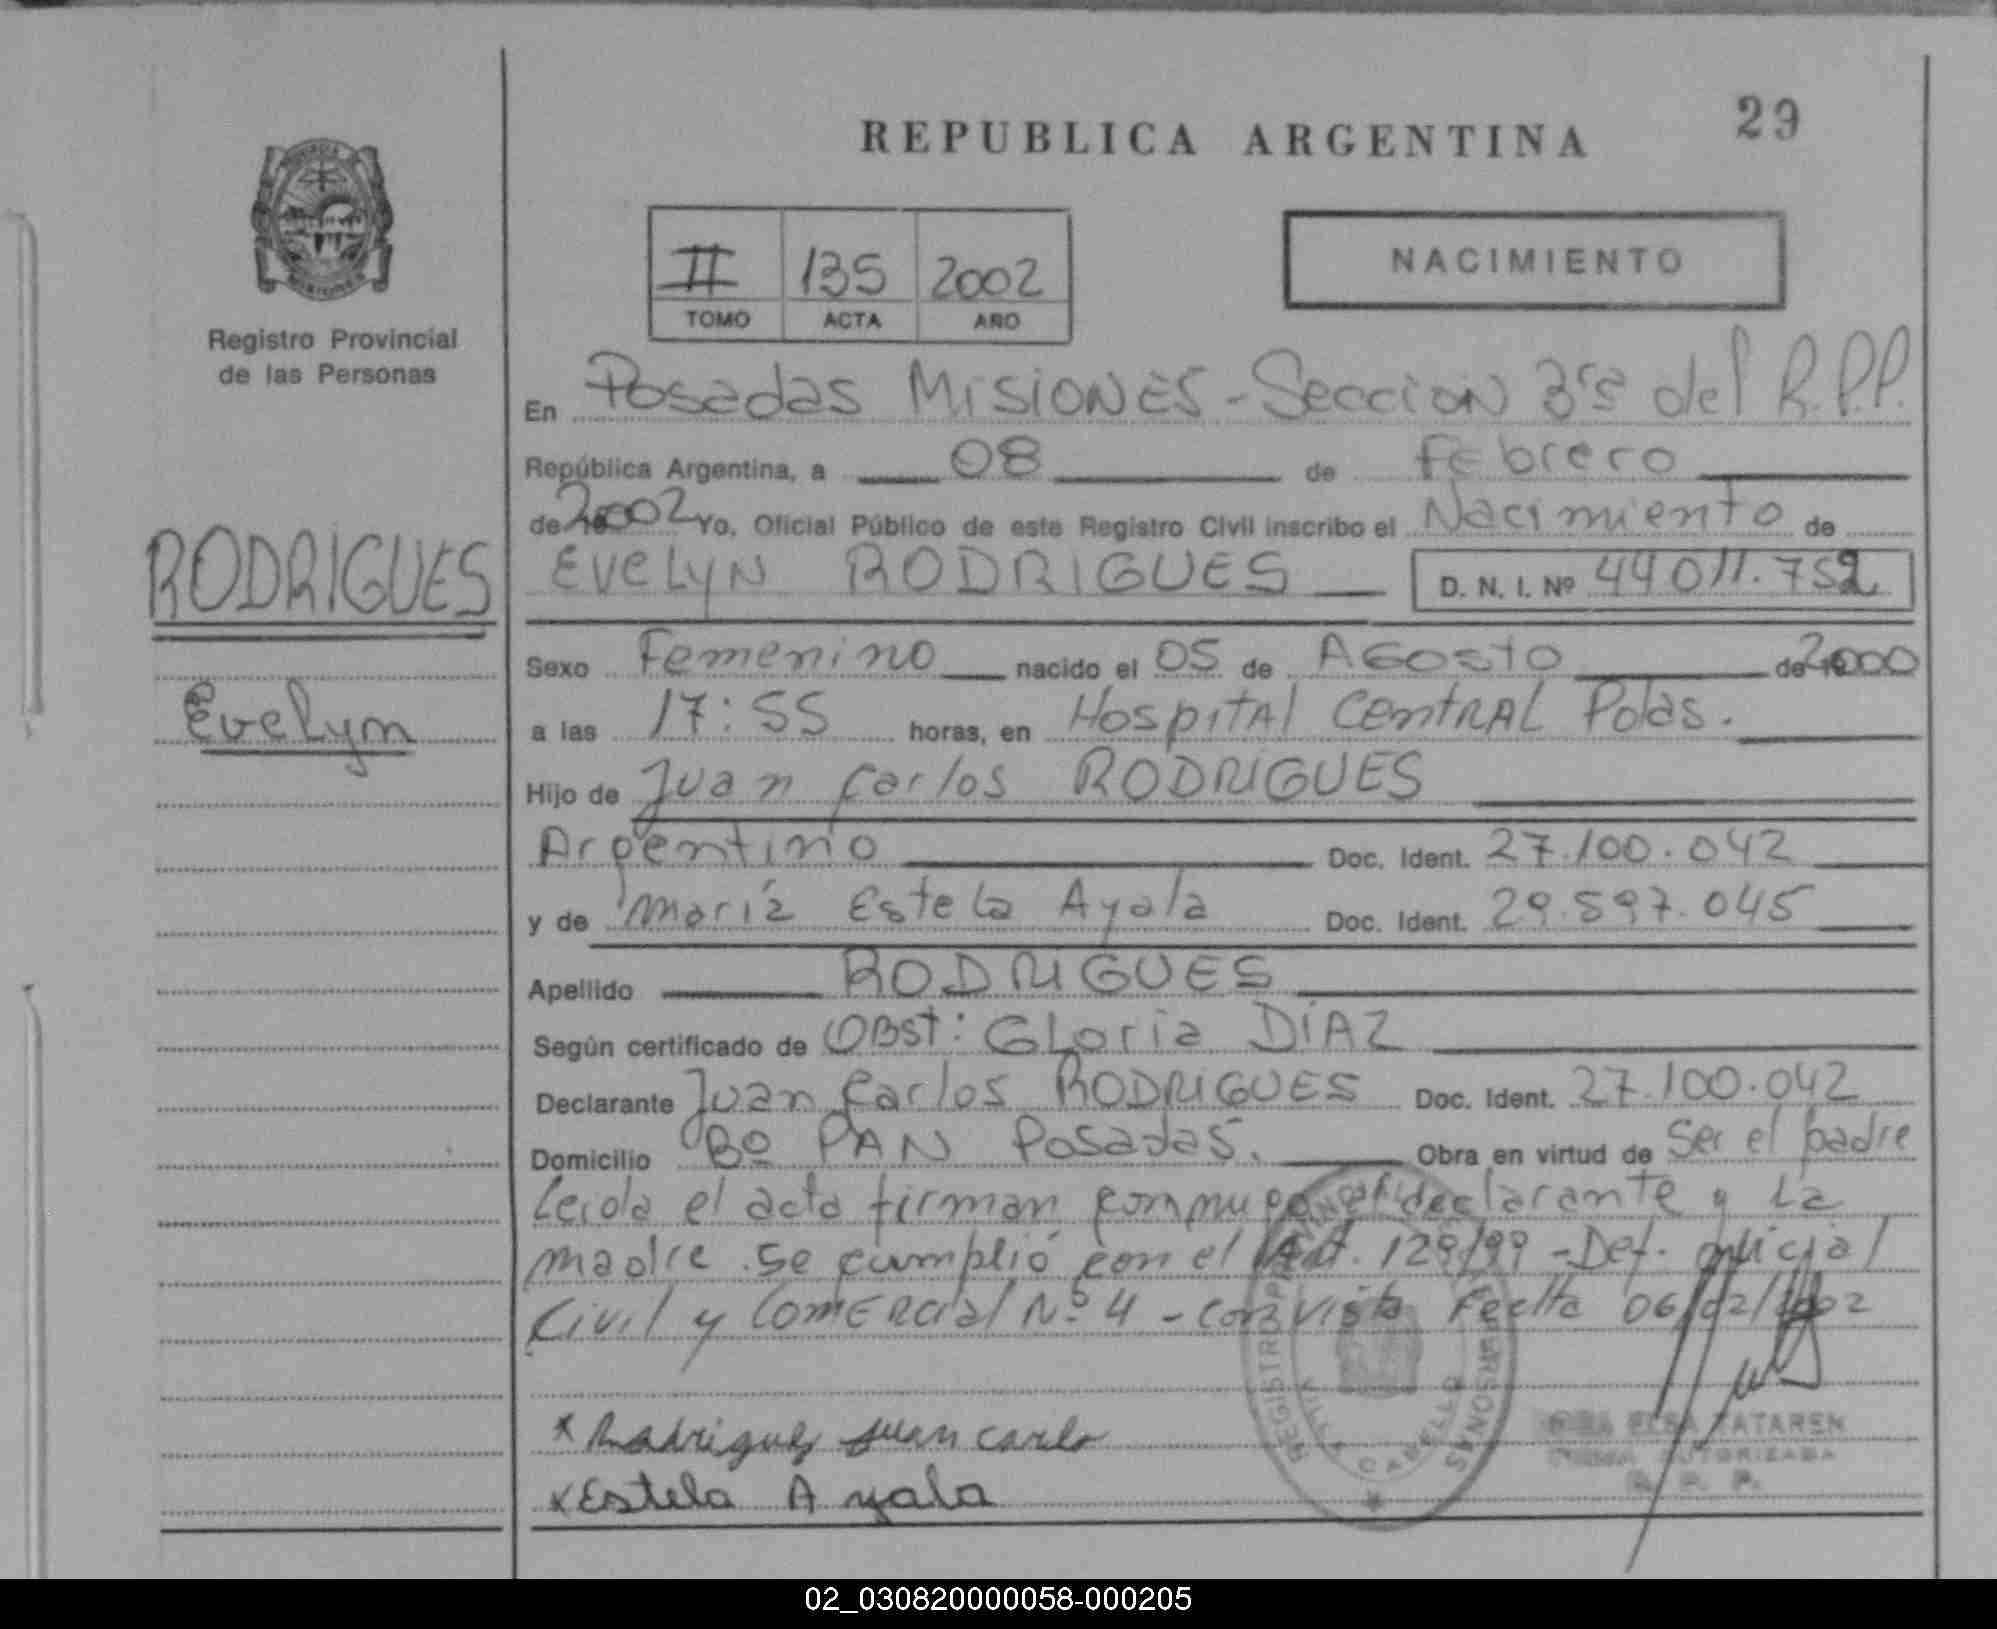 REPUBLICA ARGENTINA
29
Registro Provincial
de las Personas
II 135 2002
TOMO ACTA AÑO
NACIMIENTO
En Posadas Misiones - Seccion 3ra del R.P.P.
República Argentina, a 08 de Febrero
de 2002 Yo, Oficial Público de este Registro Civil inscribo el Nacimiento de
RODRIGUES
Evelyn
Evelyn RODRIGUES D. N. I. Nº 44 011.752
Sexo Femenino nacido el 05 de Agosto de 2000
a las 17:55 horas, en Hospital Central Pdas.
Hijo de Juan Carlos RODRIGUES
Argentino Doc. Ident. 27.100.042
y de María Estela Ayala Doc. Ident. 29.597.045
Apellido RODRIGUES
Según certificado de Obst: Gloria DÍAZ
Declarante Juan Carlos RODRIGUES Doc. Ident. 27.100.042
Domicilio Bº PAN Posadas. Obra en virtud de Ser el padre
Leida el acta firman conmigo el declarante y La
madre. Se cumplió con el 129/99 - Def. oficial
Civil y Comercial Nº 4 - Con vista Fecha 06/02/2002
x Rodrigues Juan Carlo
x Estela Ayala
REGISTRO PROVINCIAL DE LAS PERSONAS
VILLA CABELLO
ELSA
FIRMA AUTORIZADA
R. P. P.
02_030820000058-000205